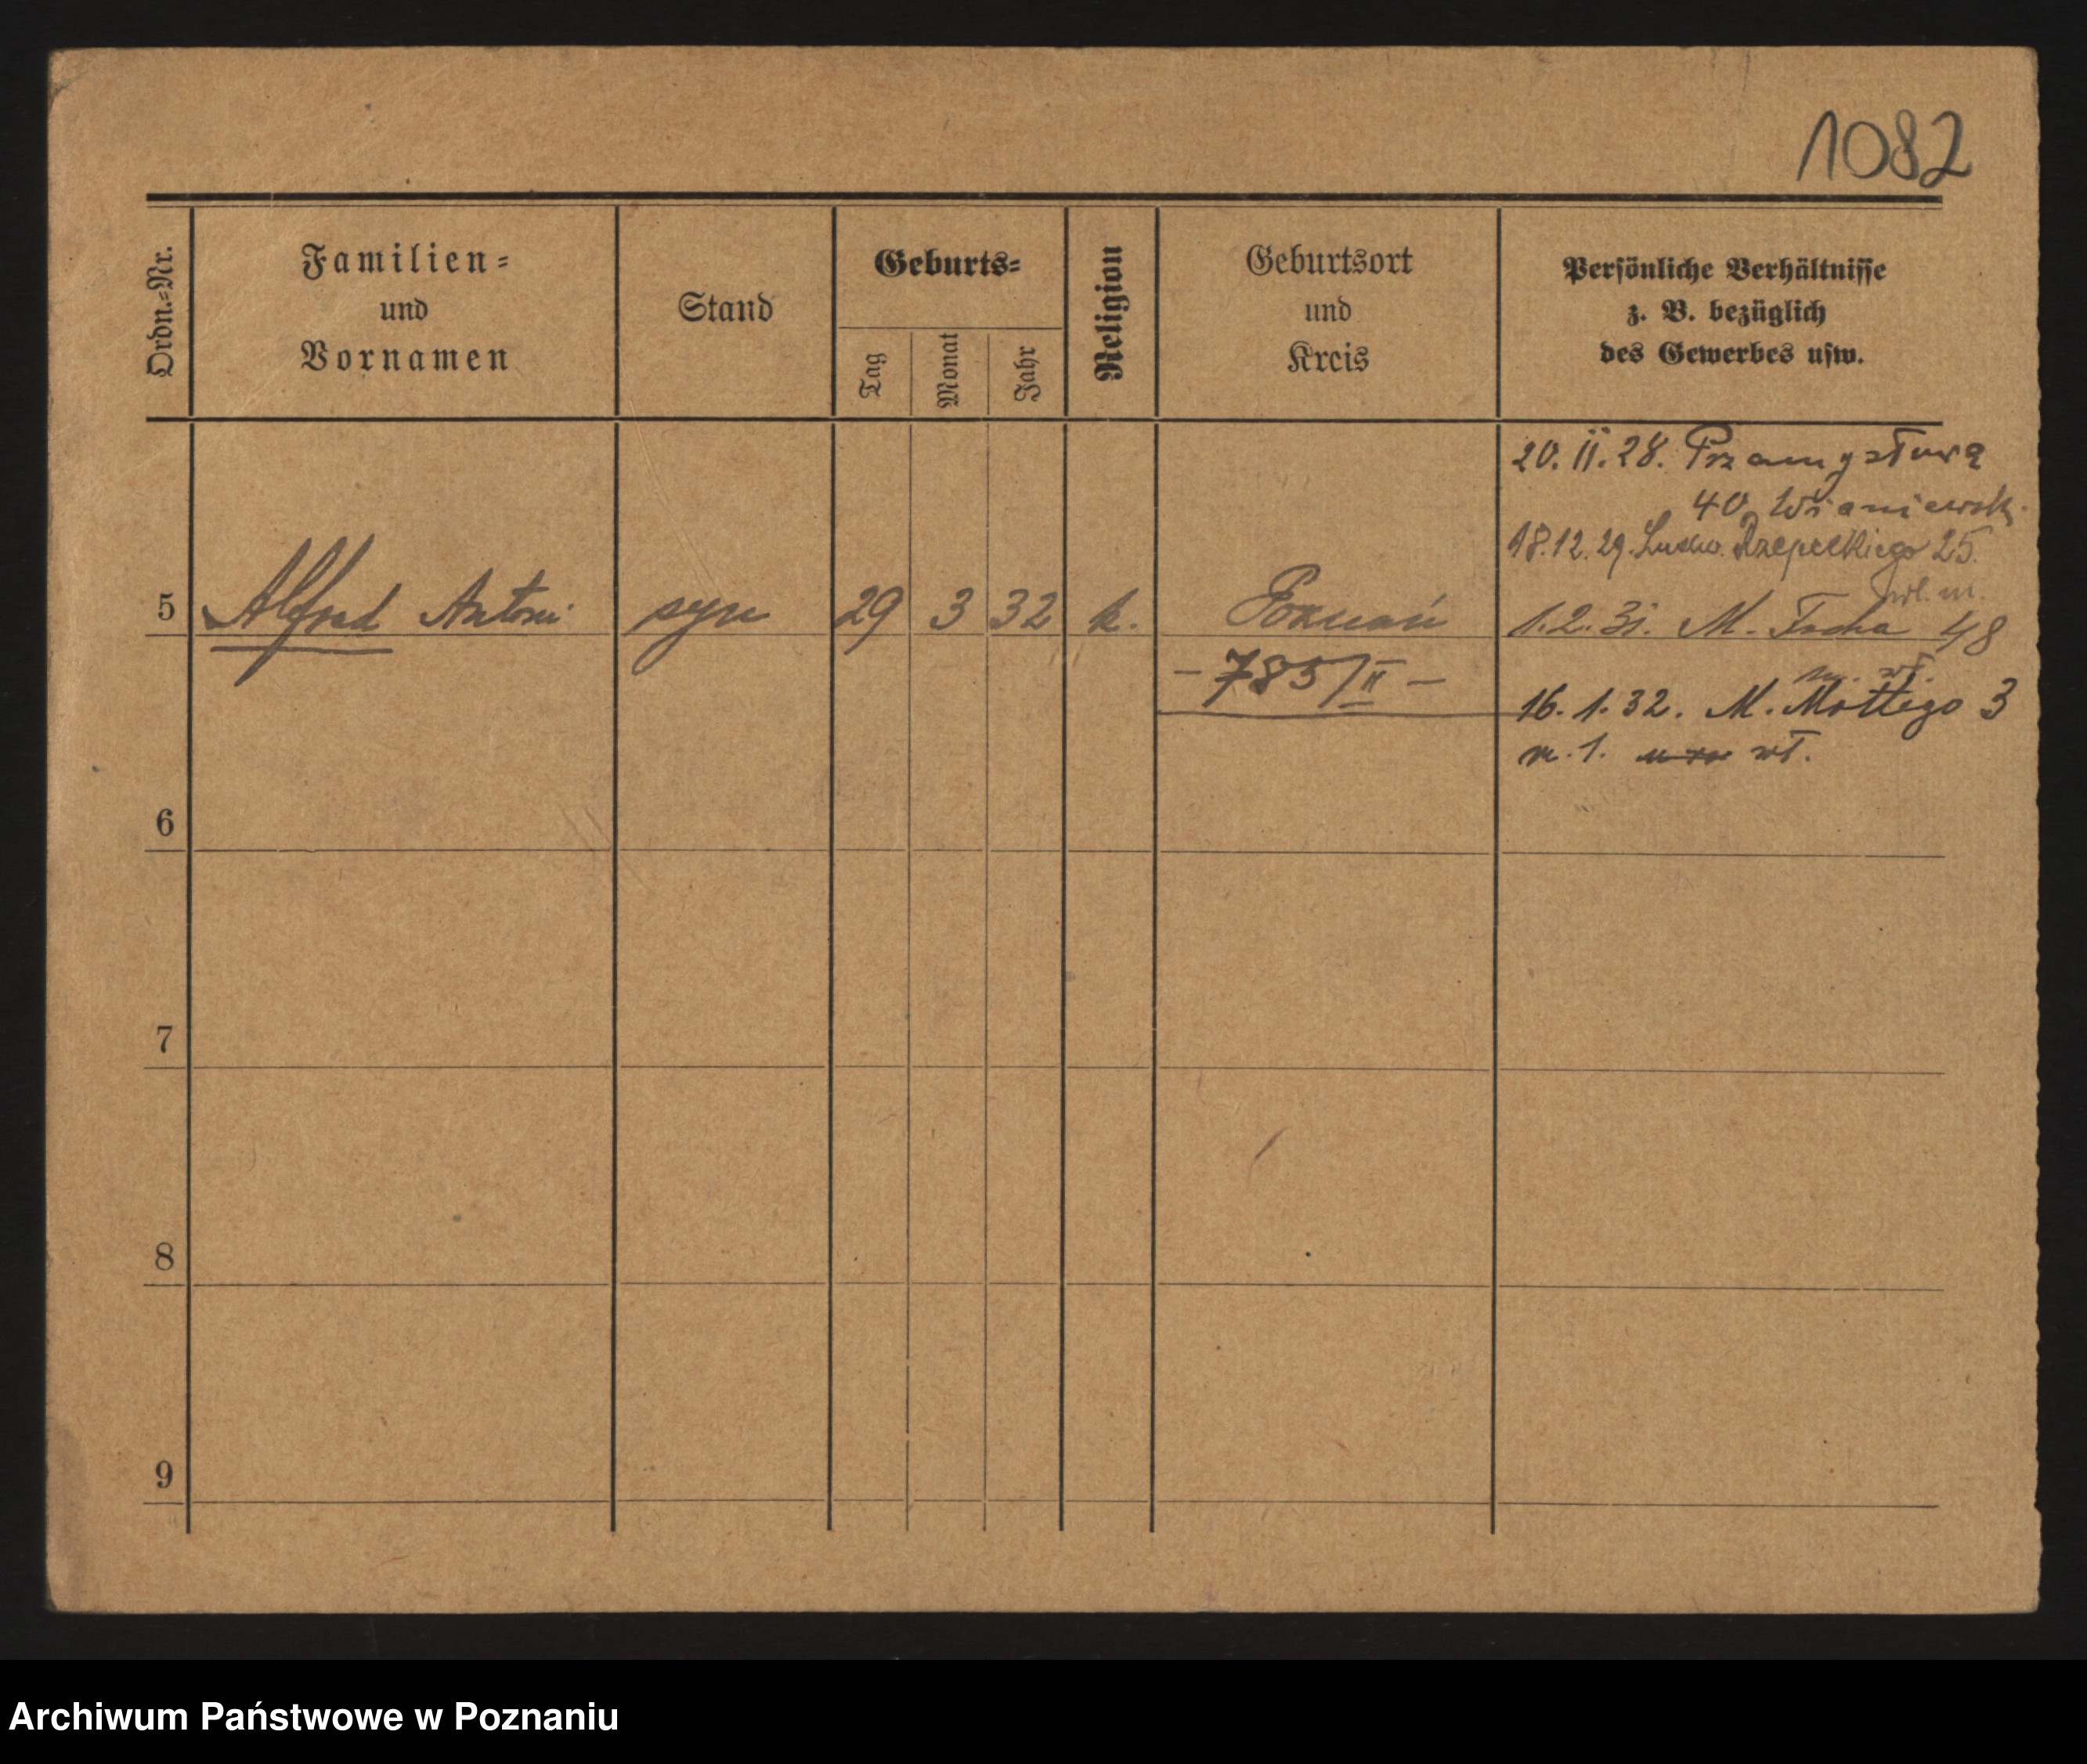 1082
Ordn.-Nr.
Familien-
und
Vornamen
Stand
Geburts-
Tag
Monat
Jahr
Religion
Geburtsort
und
Kreis
Persönliche Verhältnisse
z. B. bezüglich
des Gewerbes usw.
20. II. 28. Przemysłową
40
18.12.29. Rzepeckiego 25.
wł. m.
5 Alfred Antoni syn 29 3 32 k. Poznań 1.2.31. M. Focha 48
- 785/II -
m. wł.
16.1.32. M. Mottego 3
m. 1. wł.
6
7
8
9
Archiwum Państwowe w Poznaniu